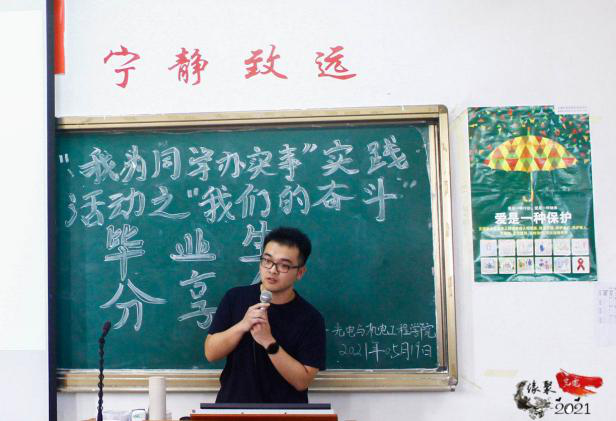 宁静致远
"我为同学办实事"实践
活动之"我们的奋斗"
毕业生
分享
光电与机电工程学院
2021年05月19日
爱是一种保护
缘聚
2021